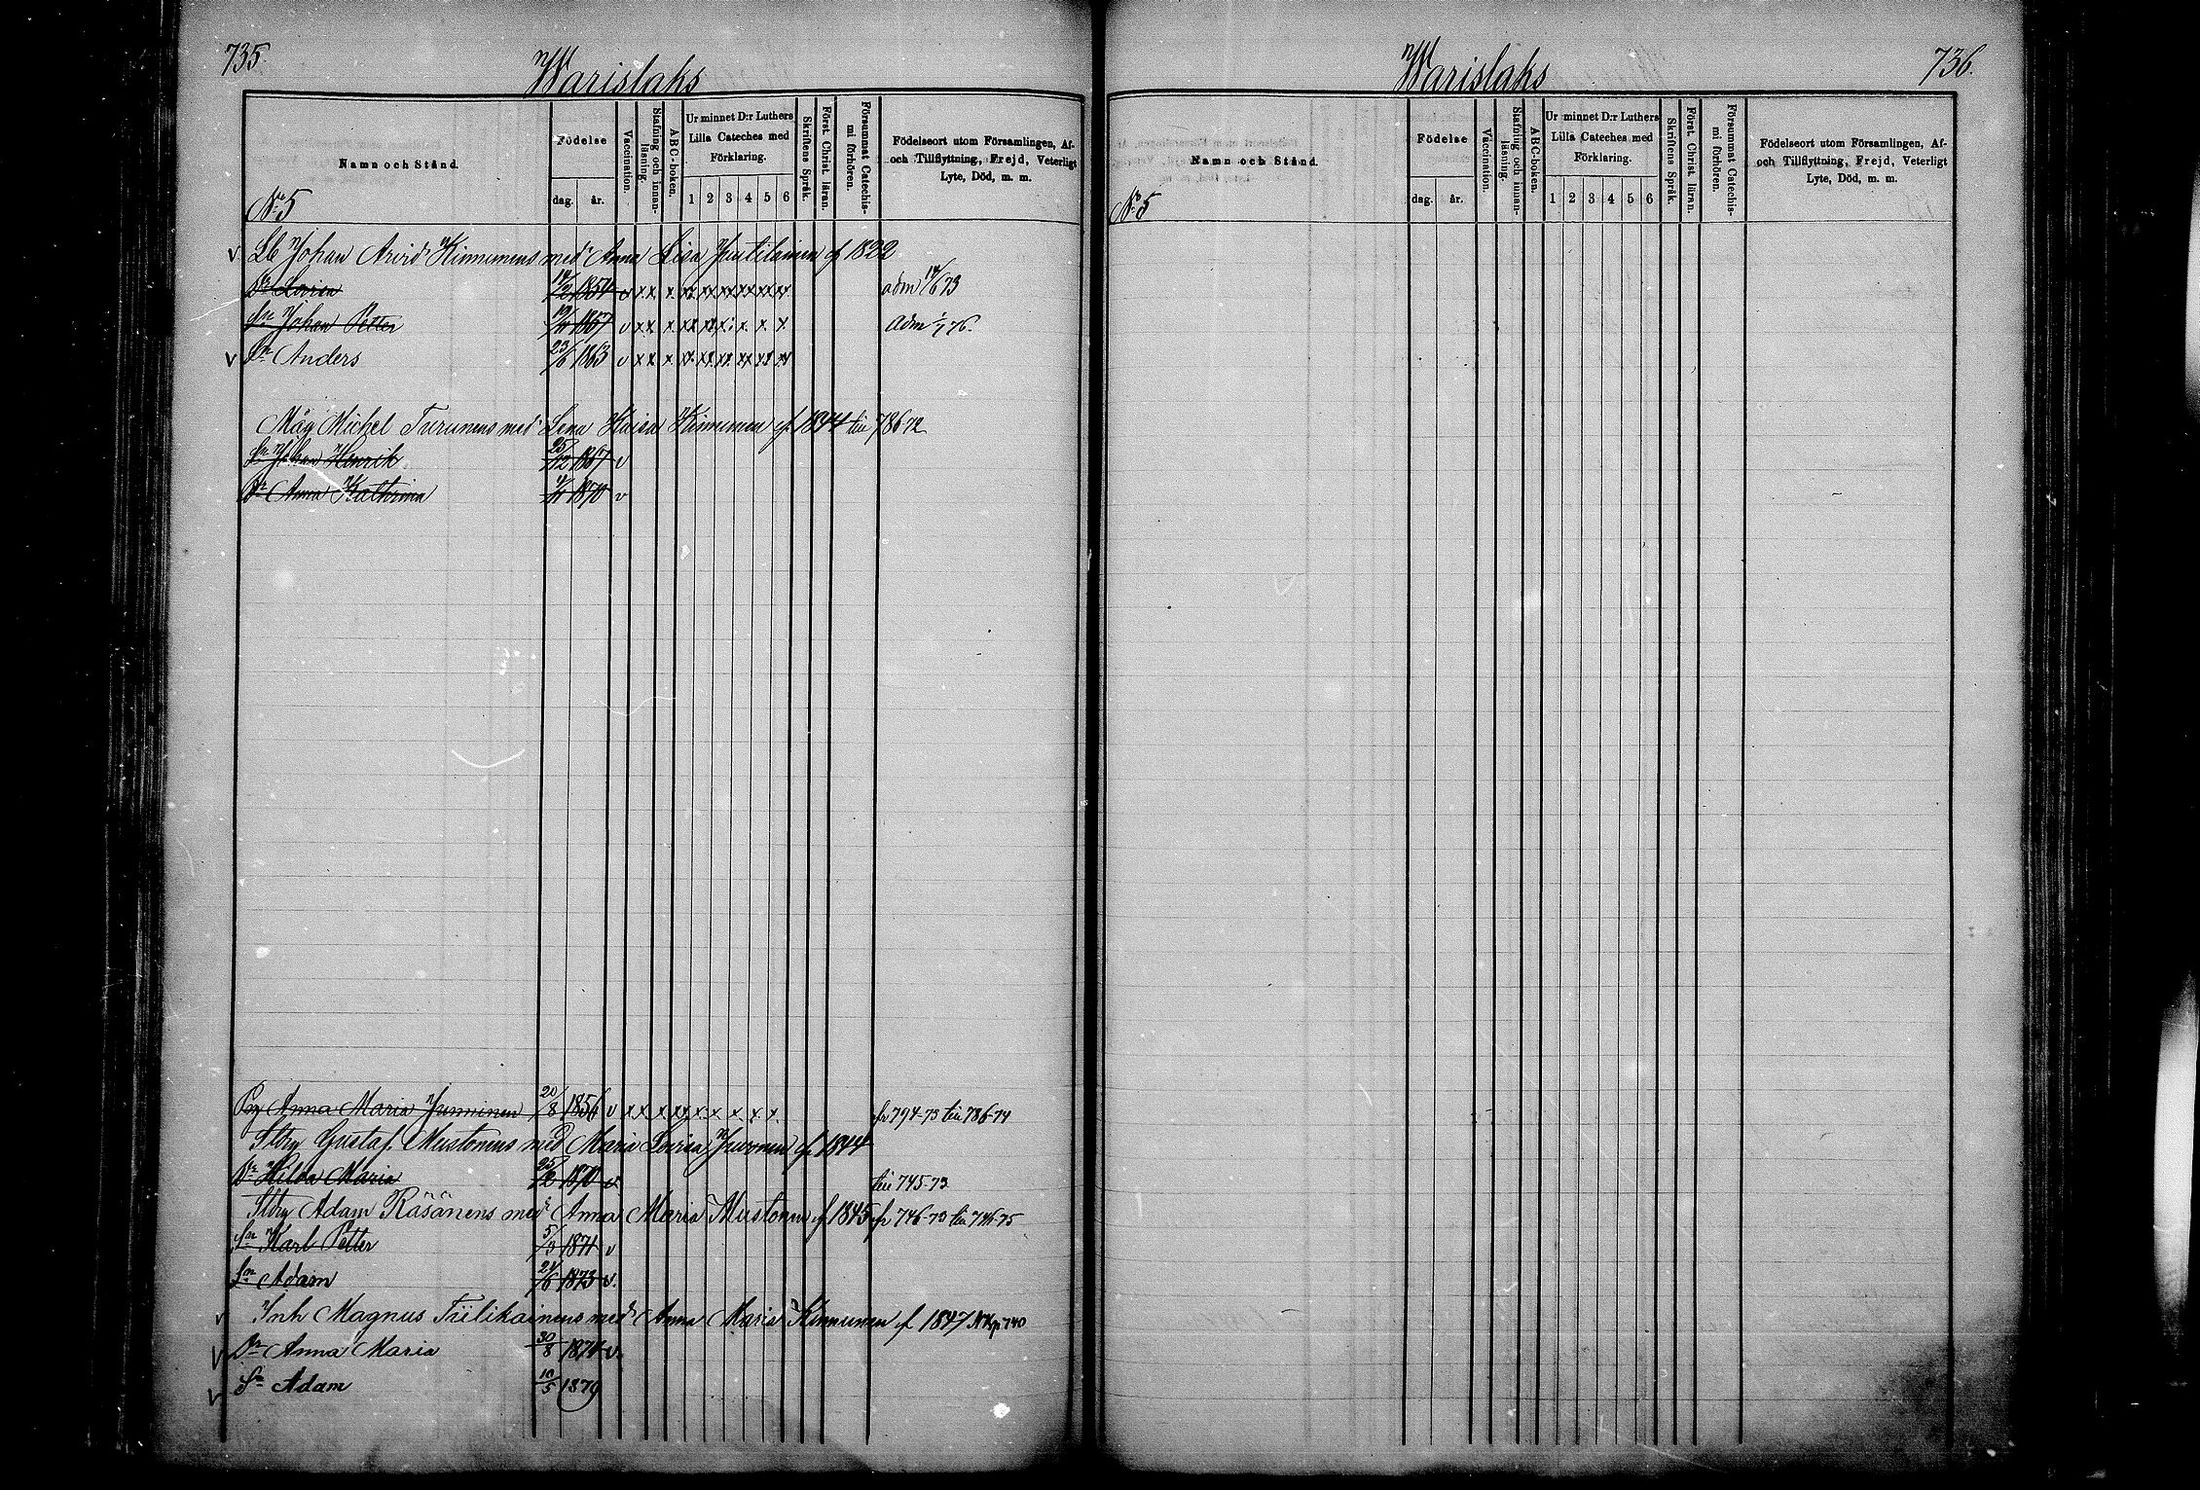 735.
Warislaks
Namn och Stånd.
Födelse
dag. år.
Vaccination.
Stafning och innan-läsning.
ABC-boken.
Ur minnet D:r Luthers
Lilla Cateches med
Förklaring.
1 2 3 4 5 6
Skriftens Språk.
Först. Christ. läran.
Försummat Catechis-mi förhören.
Födelseort utom Församlingen, Af-
och Tillflyttning, Frejd, Veterligt
Lyte, Död, m. m.
No 5
v Lb Johan Arvid Kinnunens med Anna Lisa Puutilainen cf 1822
Dr Lovisa 1854 v x x x adm 14/6 73
Sn Johan Petter 1857 v x x x Adm 1/7 76.
v Sn Anders 23/6 1863 v x x x
Måg Michel Turunens med Lena Kaisa Kinnunen cf 1844 till 786-72
Sn Johan Henrik 25/12 1867 v
Dr Anna Kathrina 1870 v
Pig Anna Maria Junninen 20/8 1856 v x x x fr 794-73 till 786-74
Sthy Gustaf Mustonens med Maria Lovisa Juvonen cf 1844
Dr Hilda Maria 25/12 1870 v. till 745-73
Sthy Adam Räsänens med Anna Maria Mustonen cf 1845 fr 746-73 till 746-75
Sn Karl Petter 5/3 1871 v
Sn Adam 24/6 1873 v.
v Inh Magnus Tiilikainens med Anna Maria Kinnunen cf 1847 740
v Dr Anna Maria 30/8 1874 v.
v Sn Adam 10/5 1879
Warislaks
736.
Namn och Stånd.
Födelse
dag. år.
Vaccination.
Stafning och innan-läsning.
ABC-boken.
Ur minnet D:r Luthers
Lilla Cateches med
Förklaring.
1 2 3 4 5 6
Skriftens Språk.
Först. Christ. läran.
Försummat Catechis-mi förhören.
Födelseort utom Församlingen, Af-
och Tillflyttning, Frejd, Veterligt
Lyte, Död, m. m.
No 5